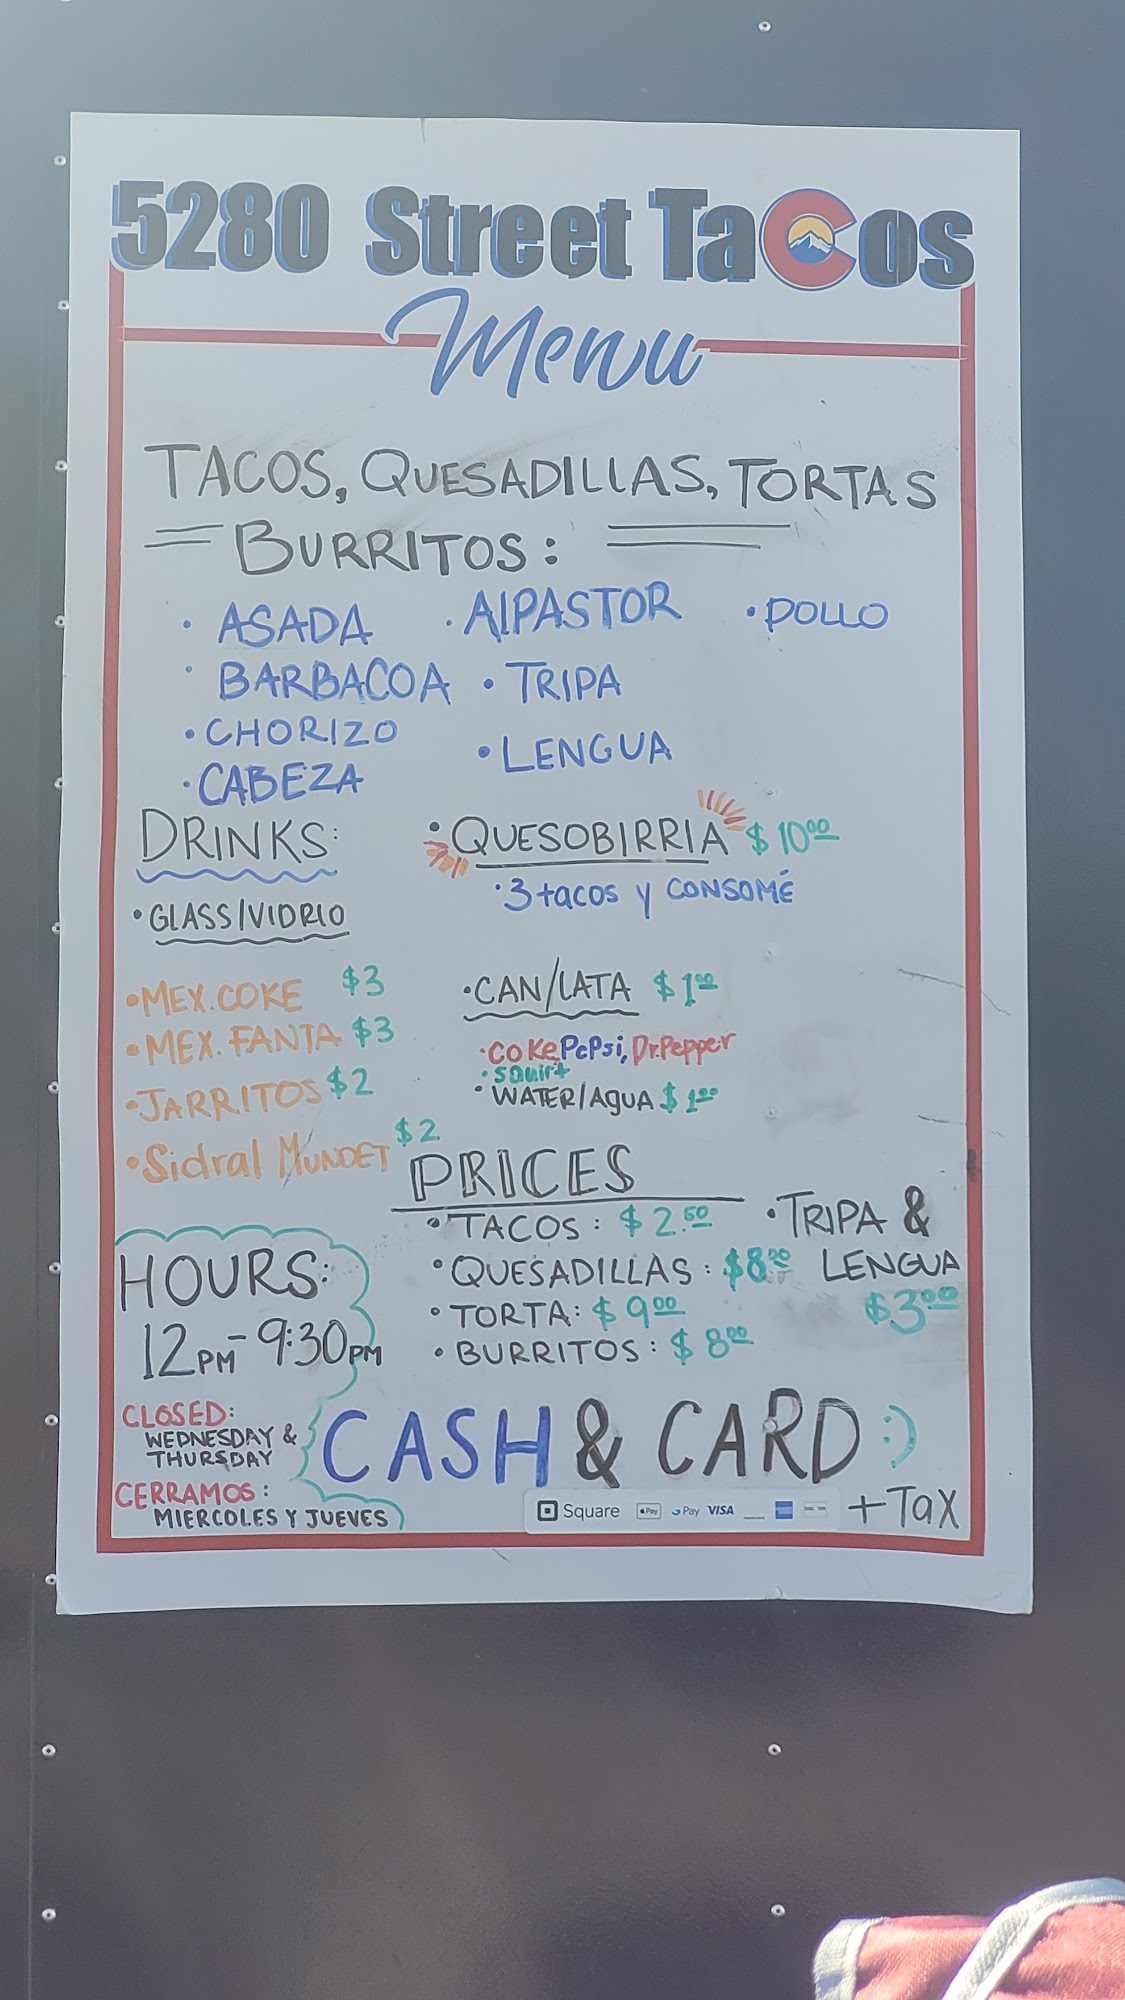 5280 Street Tacos
Menu
TACOS, QUESADILLAS, TORTAS
BURRITOS:
• ASADA • AlPASTOR • POLLO
• BARBACOA • TRIPA
• CHORIZO
• LENGUA
• CABEZA
DRINKS:
• GLASS/VIDRIO
• MEX. COKE $3
• MEX. FANTA $3
• JARRITOS $2
• Sidral MUNDET $2
• QUESOBIRRIA $10.00
• 3 tacos y CONSOMÉ
• CAN/LATA $1.00
• COKE, PePSi, Dr. Pepper
• squirt
• WATER/AguA $1.00
PRICES
• TACOS: $2.50
• QUESADILLAS: $8.00
• TORTA: $9.00
• BURRITOS: $8.00
• TRIPA &
LENGUA
$3.00
HOURS:
12PM-9:30PM
CLOSED:
WEDNESDAY &
THURSDAY
CERRAMOS:
MIERCOLES Y JUEVES
CASH & CARD :)
Square Pay Pay VISA
+ Tax